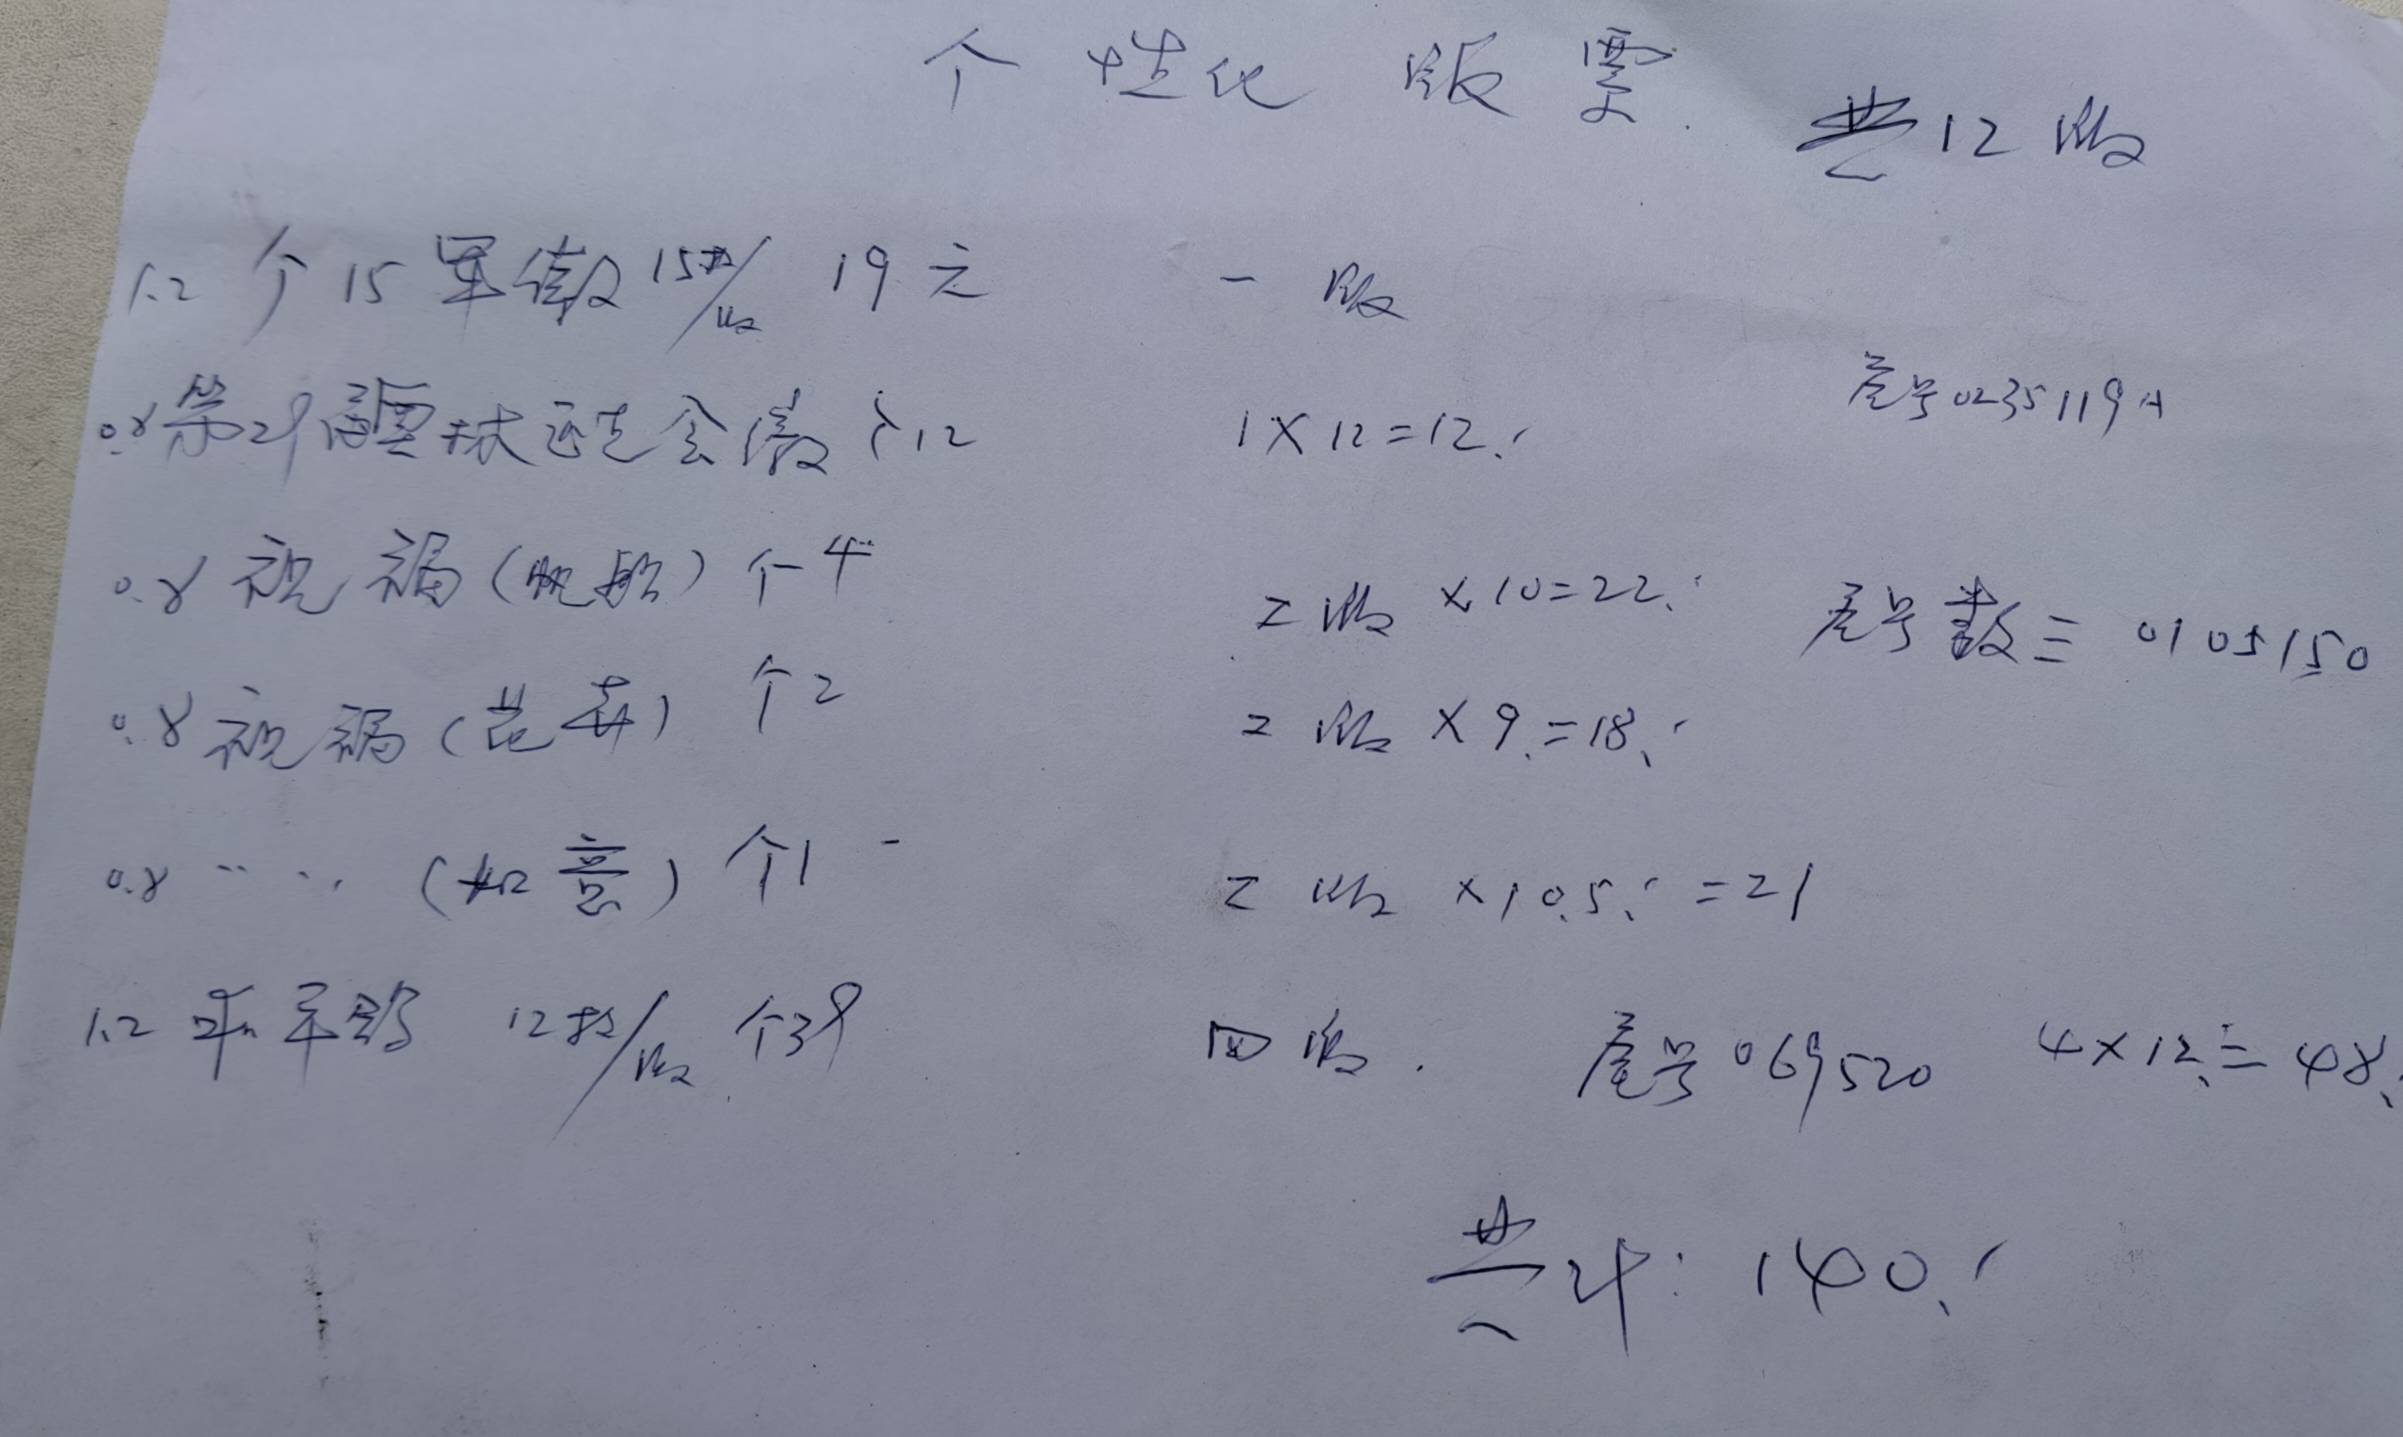 个性化 版票. 共12版
1.2 个15 军徽 15枚/版 19元 一版
0.8 第29届奥林匹克会徽 个12 1×12=12. 尾号0235119
0.8 祝福(帆船) 个4 二版 ×10=22. 尾号数三 0105150
0.8 祝福(花卉) 个2 二版 ×9.=18.
0.8 .. .. (如意) 个1 - 二版 ×10.5. =21
1.2 12枚/版 个39 四版. 尾号069520 4×12.=48.
共计: 140.